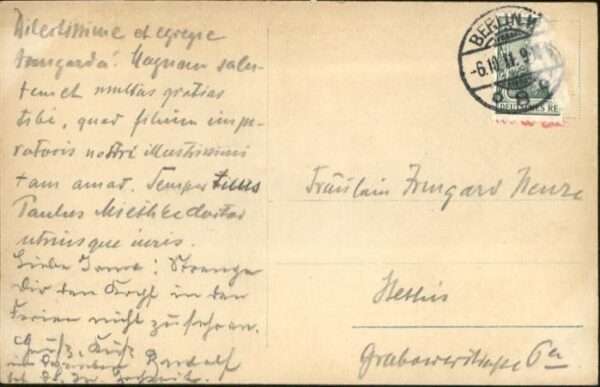 Dilectissime et egregie
Irmgarda! Magnam salu-
tem et multas gratias
tibi, quod filium impe-
ratoris nostri illustrissimi
tam amas. Semper tuus
Paulus Mieth doctor
utriusque iuris.
Liebe Irma! Strenge
Dir den Kopf in den
Ferien nicht zu sehr an.
Gruß, Kuß
Rudolf
BERLIN W
-6.10.11. 9
DEUTSCHES RE
Fräulein Irmgard
Stettin
Grabowerstraße 6